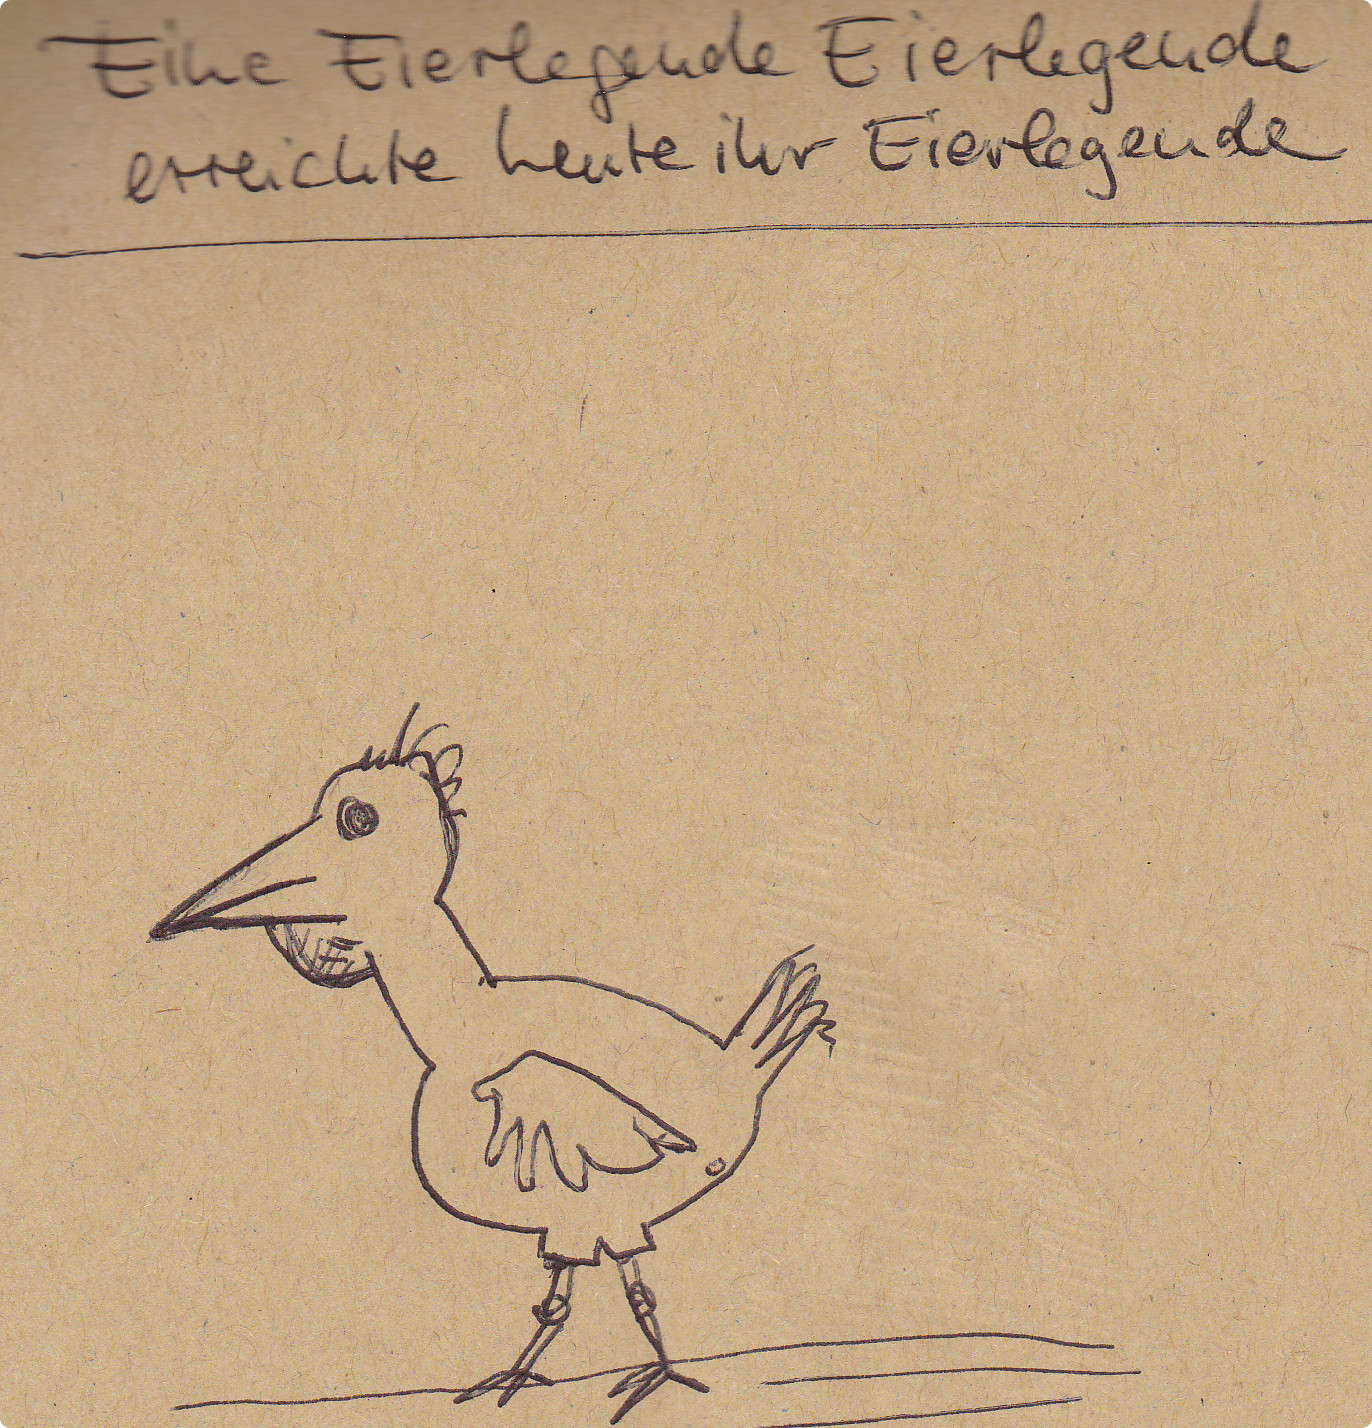 Eine Eierlegende Eierlegende
erreichte heute ihr Eierlegende